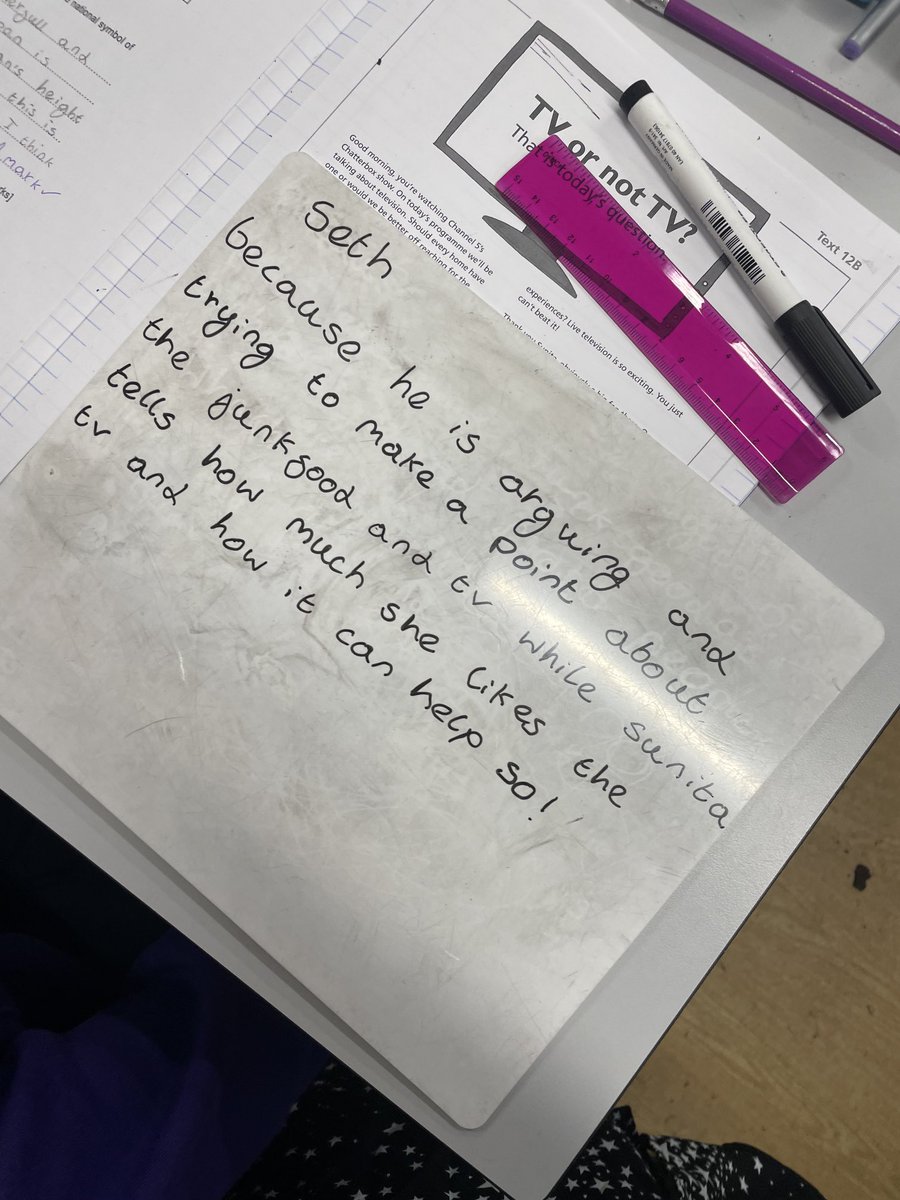 national symbol of
and
is
height
this is
I think
mark
Text 12B
TV or not TV?
That is today's question
Good morning, you're watching Channel 5's
Chatterbox show. On today's programme we'll be
talking about television. Should every home have
one or would we be better off reaching for the
experiences? Live television is so exciting. You just
can't beat it!
Seth
because he is arguing and
trying to make a point about
the junkgood and tv while sunita
tells how much she likes the
tv and how it can help so!